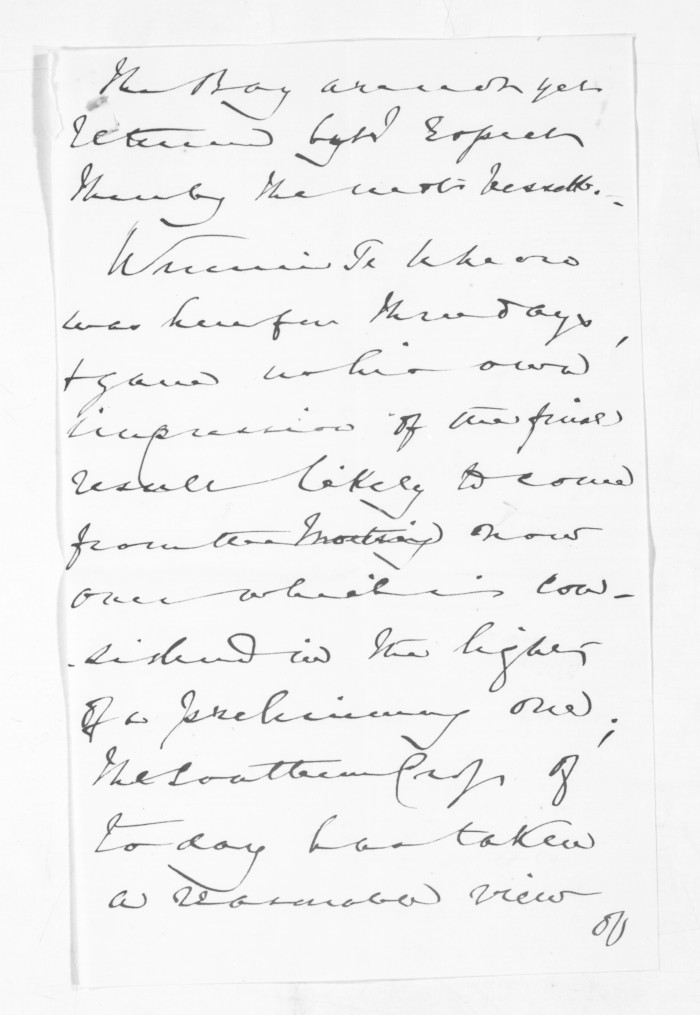 The Bay are not yet
returned but I expect
them by the next vessel.-
Wiremu Te Wheoro
was here for three days,
& gave us his own
impression of the final
result likely to come
from the Meeting now
over which is con-
-sidered in the light
of a preliminary one;
The Southern Cross of
to day has taken
a reasonable view
of